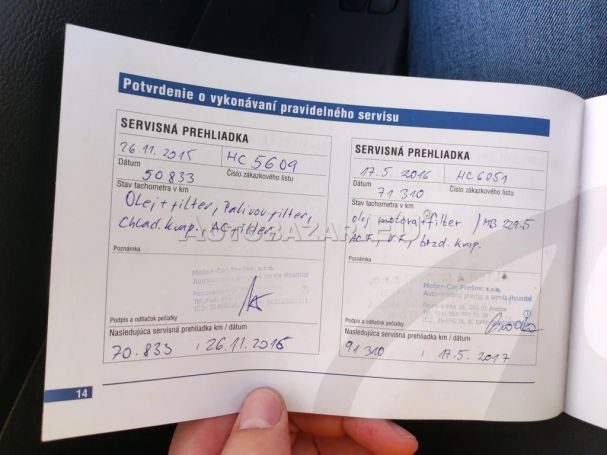 Potvrdenie o vykonávaní pravidelného servisu
SERVISNÁ PREHLIADKA
26.11.2015 HC 5609
Dátum Číslo zákazkového listu
50 833
Stav tachometra v km
Olej + filter, Palivov. filter,
Chlad. kvap., AC filter
Poznámka
Motor-Car Prešov, s.r.o.
Autorizovaný predaj a servis Hyundai
Podpis a odtlačok pečiatky
Nasledujúca servisná prehliadka km / dátum
70.833 , 26.11.2016
SERVISNÁ PREHLIADKA
17.5.2016 HC6051
Dátum Číslo zákazkového listu
71 310
Stav tachometra v km
olej motora + filter / MB 229.5
AC F., V.F., brzd. kvap.
Poznámka
Motor-Car Prešov, s.r.o.
Autorizovaný predaj a servis Hyundai
Podpis a odtlačok pečiatky
Nasledujúca servisná prehliadka km / dátum
91 310 , 17.5.2017
14
AUTOBAZAR.EU